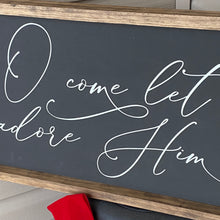 O come let
adore Him